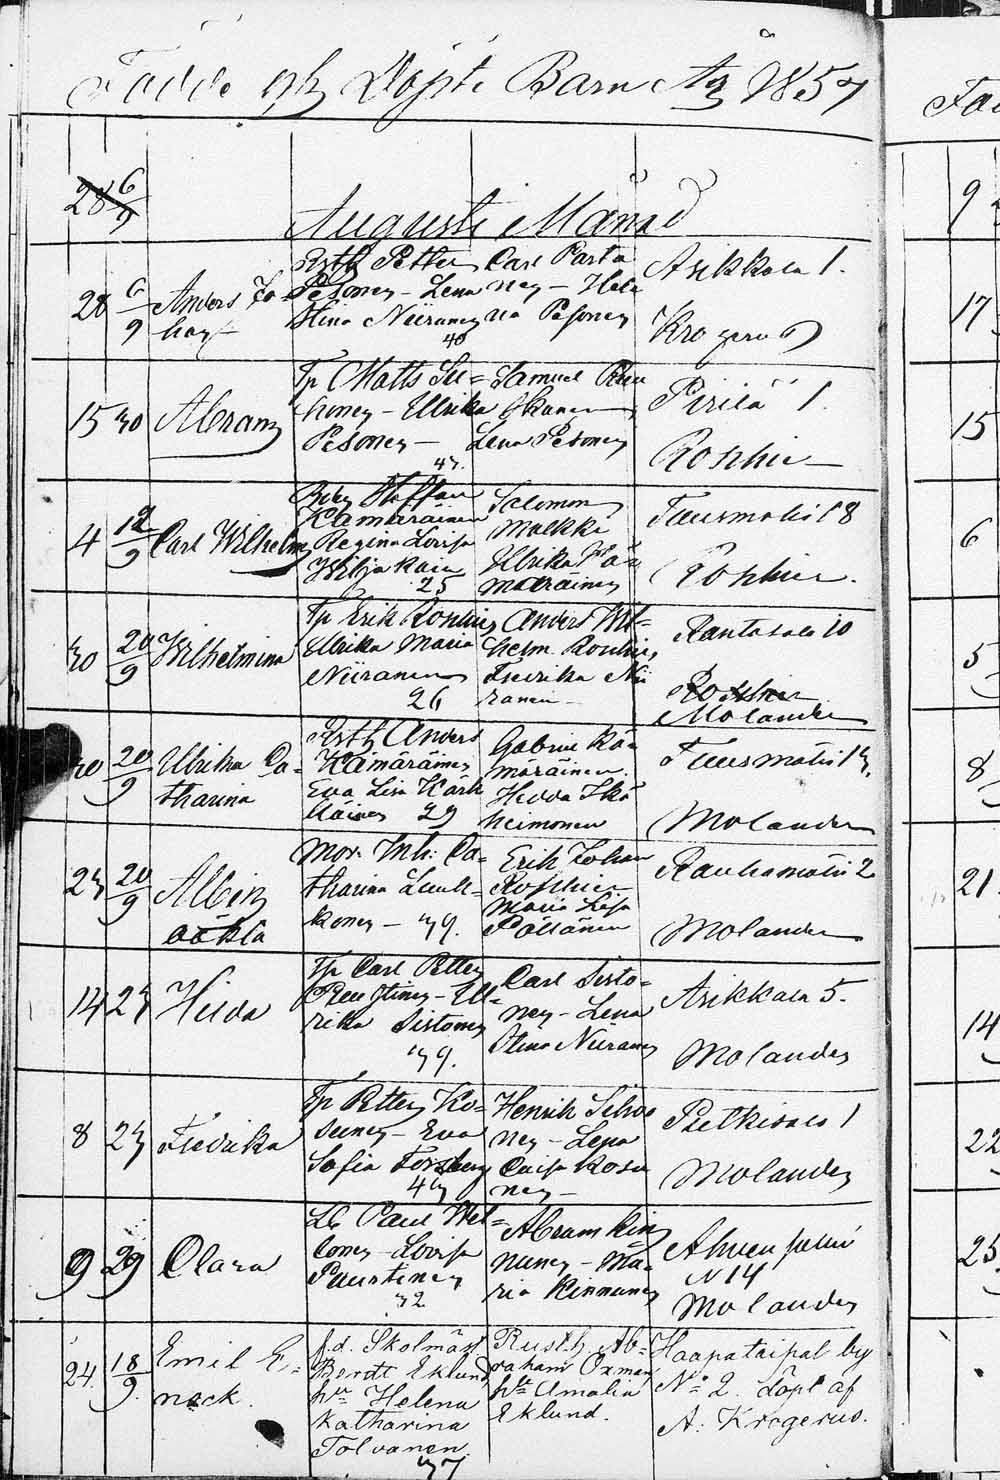 Födde och Döpte Barn År 1857
Augusti Månad
28 6/9
28 6/9 Anders Jo-
han
Rusth Petter
Pesonen - Lena
Stina Niiranen
40
Carl Parta
nen - Hele
na Pesonen
Asikkala 1.
Krogerus
15 30 Abram
Tp Matts Su=
honen - Ulrika
Pesonen -
43.
Samuel
Lena Pesonen
Pirilä 1.
Rosshier
4 12/9 Carl Wilhelm
Staffan
Kämäräinen
Regina Lovisa
Wiljakain
25
Salomon
Malkki
Ulrika Kä=
märäinen
Tuusmäki 18
Rosshier.
30 20/9 Wilhelmina
Tp Erik Rosshier
Ulrika Maria
Niiranen
26
Anders Wil=
helm Rosshier
Fredrika Nii
ranen -
Rantasalo 10
Rosshier
Molander
30 20/9 Ulrika Ca-
tharina
Rusth Anders
Kämäräinen
Eva Lisa Kärk
käinen 29
Gabriel Kä=
märäinen
Hedda Ikä
heimonen
Tuusmäki 13.
Molander
23 20/9 Albin
oäkta
Mor. Inh: Ca=
tharina Luuk=
konen - 39.
Erik Johan
Rosshier
Maria Lisa
Pöllänen
Rauhamäki 2
Molander
14 23 Hilda
Tp Carl Petter
Ul=
rika Sistonen
39.
Carl Sisto=
nen - Lena
Stina Niiranen
Asikkala 5.
Molander
8 23 Fredrika
Tp Petter Ko=
sunen - Eva
Sofia Forsberg
43
Henrik Silvo
nen - Lena
Caisa Kosu
nen -
Putkisalo 1
Molander
9 29 Clara
Paul Wel=
lonen - Lovisa
Puustinen
32
Abram Kin
nunen - Ma=
ria Kinnunen
Ahvensalmi
N 14
Molander
24. 18/9. Emil E=
nock.
f.d. Skolmäst
Berndt Eklund
hu Helena
Katharina
Tolvanen
37
Rusth. Ab=
raham Oxman
ht Amalia
Eklund.
Haapataipal by
No 2. Döpt af
A. Krogerus.
Fö
9
17
15
6
5
8
21.
14
22
25